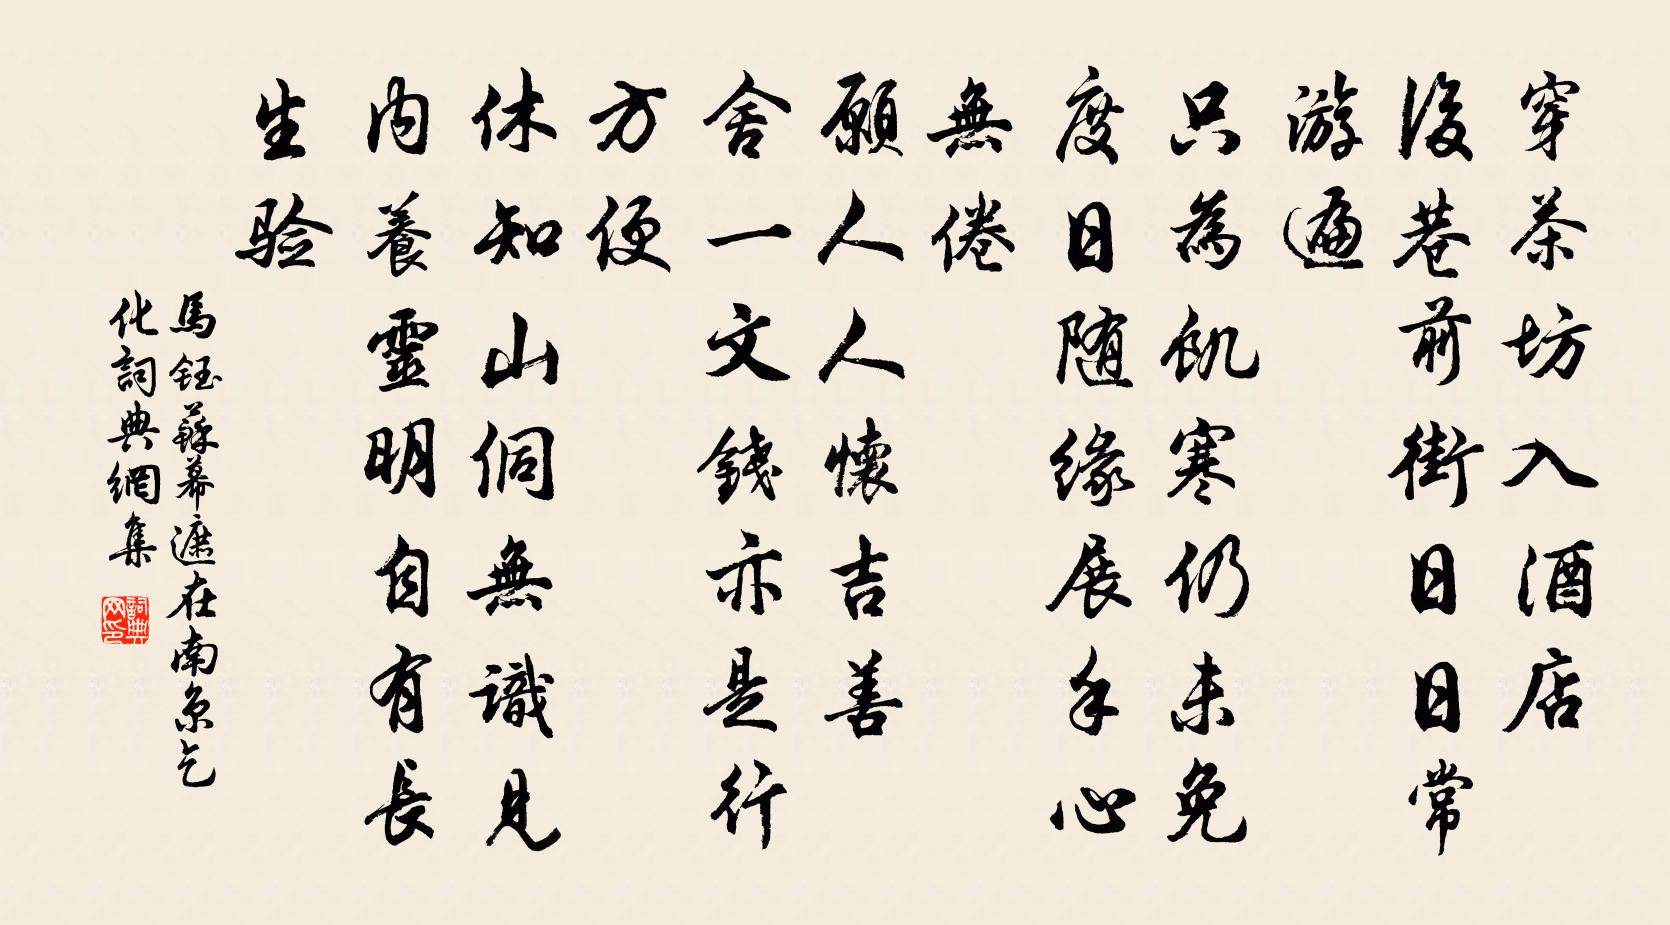 穿茶坊入酒店
後巷前街日日常
游遍
只為飢寒仍未免
度日随缘展手心
無倦
願人人懷吉善
舍一文錢亦是行
方便
休知山侗無識見
内養靈明自有長
生验
馬鈺蘇幕遮在南京乞
化詞典網集
詞典
网印